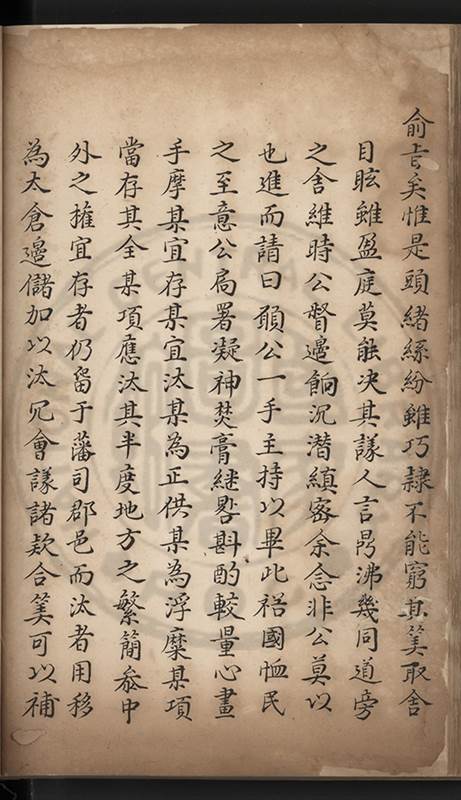 俞吉矣惟是頭緒絲紛雖巧隷不能窮其筭取舍
目眩雖盈庭莫能決其議人言昜沸幾同道旁
之舍維時公督邊餉沉潛縝宻余念非公莫以
也進而請曰願公一手主持以畢此裕國恤民
之至意公局署凝神焚膏継晷斟酌較量心畫
手摩某宜存某宜汰某為正供某為浮糜某項
當存其全某項應汰其半度地方之繁簡叅中
外之摧宜存者仍畱于藩司郡邑而汰者用移
為太倉邊儲加以汰冗會議諸欵合筭可以補